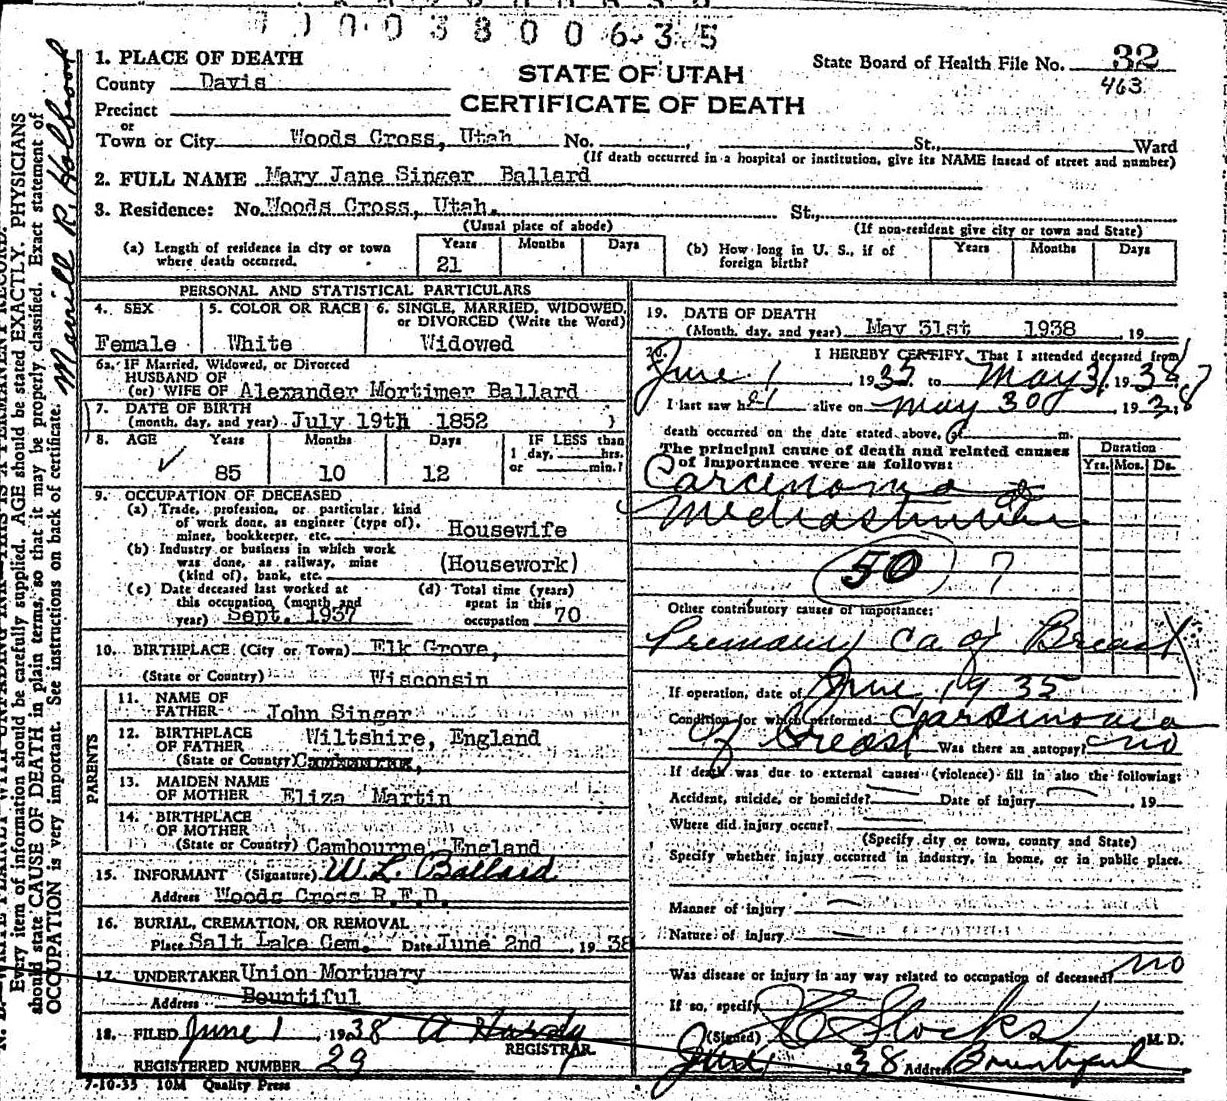 7 0 0 0 3 8 0 0 6 3 5
1. PLACE OF DEATH
County Davis
Precinct
or
Town or City Woods Cross, Utah No. St., Ward
STATE OF UTAH
CERTIFICATE OF DEATH
State Board of Health File No. 32
463
(If death occurred in a hospital or institution, give its NAME instead of street and number)
2. FULL NAME Mary Jane Singer Ballard
3. Residence: No. Woods Cross, Utah. St.,
(Usual place of abode)
(If non-resident give city or town and State)
(a) Length of residence in city or town where death occurred. Years 21 Months Days
(b) How long in U. S., if of foreign birth? Years Months Days
PERSONAL AND STATISTICAL PARTICULARS
4. SEX Female
5. COLOR OR RACE White
6. SINGLE, MARRIED, WIDOWED, or DIVORCED (Write the Word) Widowed
6a. IF Married, Widowed, or Divorced
HUSBAND OF
(or) WIFE OF Alexander Mortimer Ballard
7. DATE OF BIRTH
(month, day, and year) July 19th 1852
8. AGE Years 85 Months 10 Days 12
IF LESS than
1 day, hrs.
or min.?
9. OCCUPATION OF DECEASED
(a) Trade, profession, or particular kind
of work done, as engineer (type of),
miner, bookkeeper, etc. Housewife
(b) Industry or business in which work
was done, as railway, mine
(kind of), bank, etc. (Housework)
(c) Date deceased last worked at
this occupation (month and
year) Sept. 1937
(d) Total time (years)
spent in this
occupation 70
10. BIRTHPLACE (City or Town) Elk Grove,
(State or Country) Wisconsin
PARENTS
11. NAME OF
FATHER John Singer
12. BIRTHPLACE
OF FATHER Wiltshire, England
(State or Country)
13. MAIDEN NAME
OF MOTHER Eliza Martin
14. BIRTHPLACE
OF MOTHER
(State or Country) Cambourne, England
15. INFORMANT (Signature) W. L. Ballard
Address Woods Cross R.F.D.
16. BURIAL, CREMATION, OR REMOVAL
Place Salt Lake Cem. Date June 2nd, 1938
17. UNDERTAKER Union Mortuary
Address Bountiful
18. FILED June 1, 1938 A Hardy
REGISTRAR
REGISTERED NUMBER 29
7-10-35 10M Quality Press
19. DATE OF DEATH
(Month, day, and year) May 31st 1938, 19
20. I HEREBY CERTIFY, That I attended deceased from
June 1, 1935 to May 31, 1938
I last saw her alive on May 30, 1938
death occurred on the date stated above, at m.
The principal cause of death and related causes
of importance were as follows:
Duration
Yrs. Mos. Ds.
Carcinoma of
Mediastinum
50 7
Other contributory causes of importance:
Primary Ca of Breast
If operation, date of June 1935
Condition for which performed Carcinoma
of breast Was there an autopsy? no
If death was due to external causes (violence) fill in also the following:
Accident, suicide, or homicide? Date of injury, 19
Where did injury occur?
(Specify city or town, county and State)
Specify whether injury occurred in industry, in home, or in public place.
Manner of injury
Nature of injury
Was disease or injury in any way related to occupation of deceased? no
If so, specify
(Signed) Stocks M. D.
June 1938 Address Bountiful
N. B.—WRITE PLAINLY WITH UNFADING INK—THIS IS A PERMANENT RECORD.
Every item of information should be carefully supplied. AGE should be stated EXACTLY. PHYSICIANS
should state CAUSE OF DEATH in plain terms, so that it may be properly classified. Exact statement of
OCCUPATION is very important. See instructions on back of certificate.
Merrill R. Holbrook